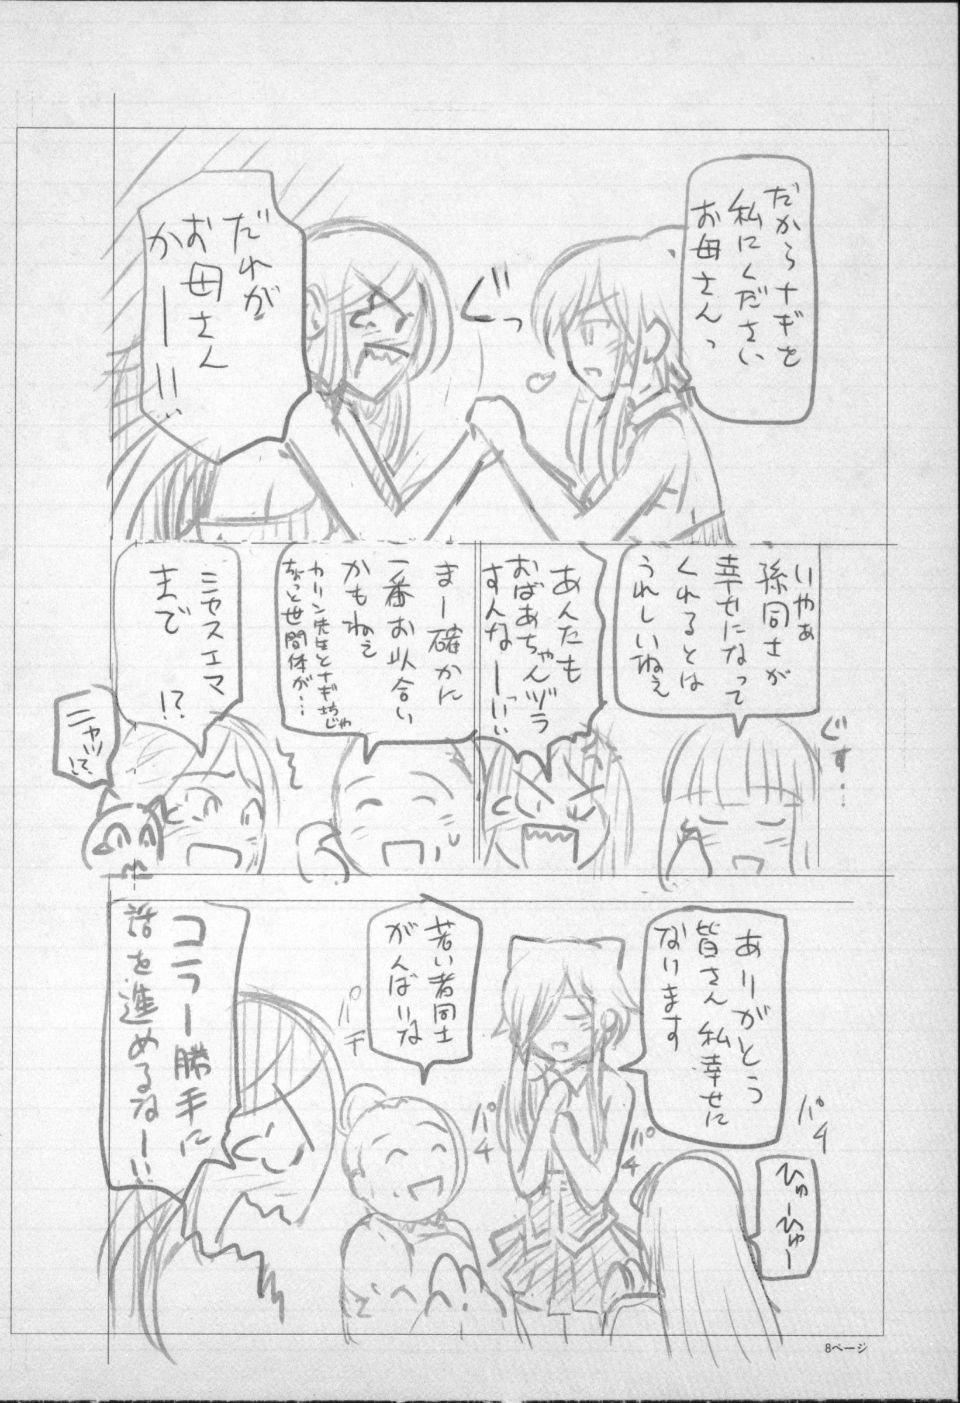 だからナギを
私にください
お母さんっ
ぐっ
だれが
お母さん
かーー!!
いやぁ
孫同士が
幸せになって
くれるとは
うれしいねぇ
ぐす…
あんたも
おばあちゃんヅラ
すんなーっ!!
まー確かに
一番お似合い
かもねぇ
カリン先生とナギ坊じゃ
ちょっと世間体が…
ミヤスエマ
まで
!?
ニャッ!?
ありがとう
皆さん 私幸せに
なります
パチ
ひゅーひゅー
パチ
パチ
若い者同士
がんばいな
パチ
コラー勝手に
話を進めるなー!!
8ページ